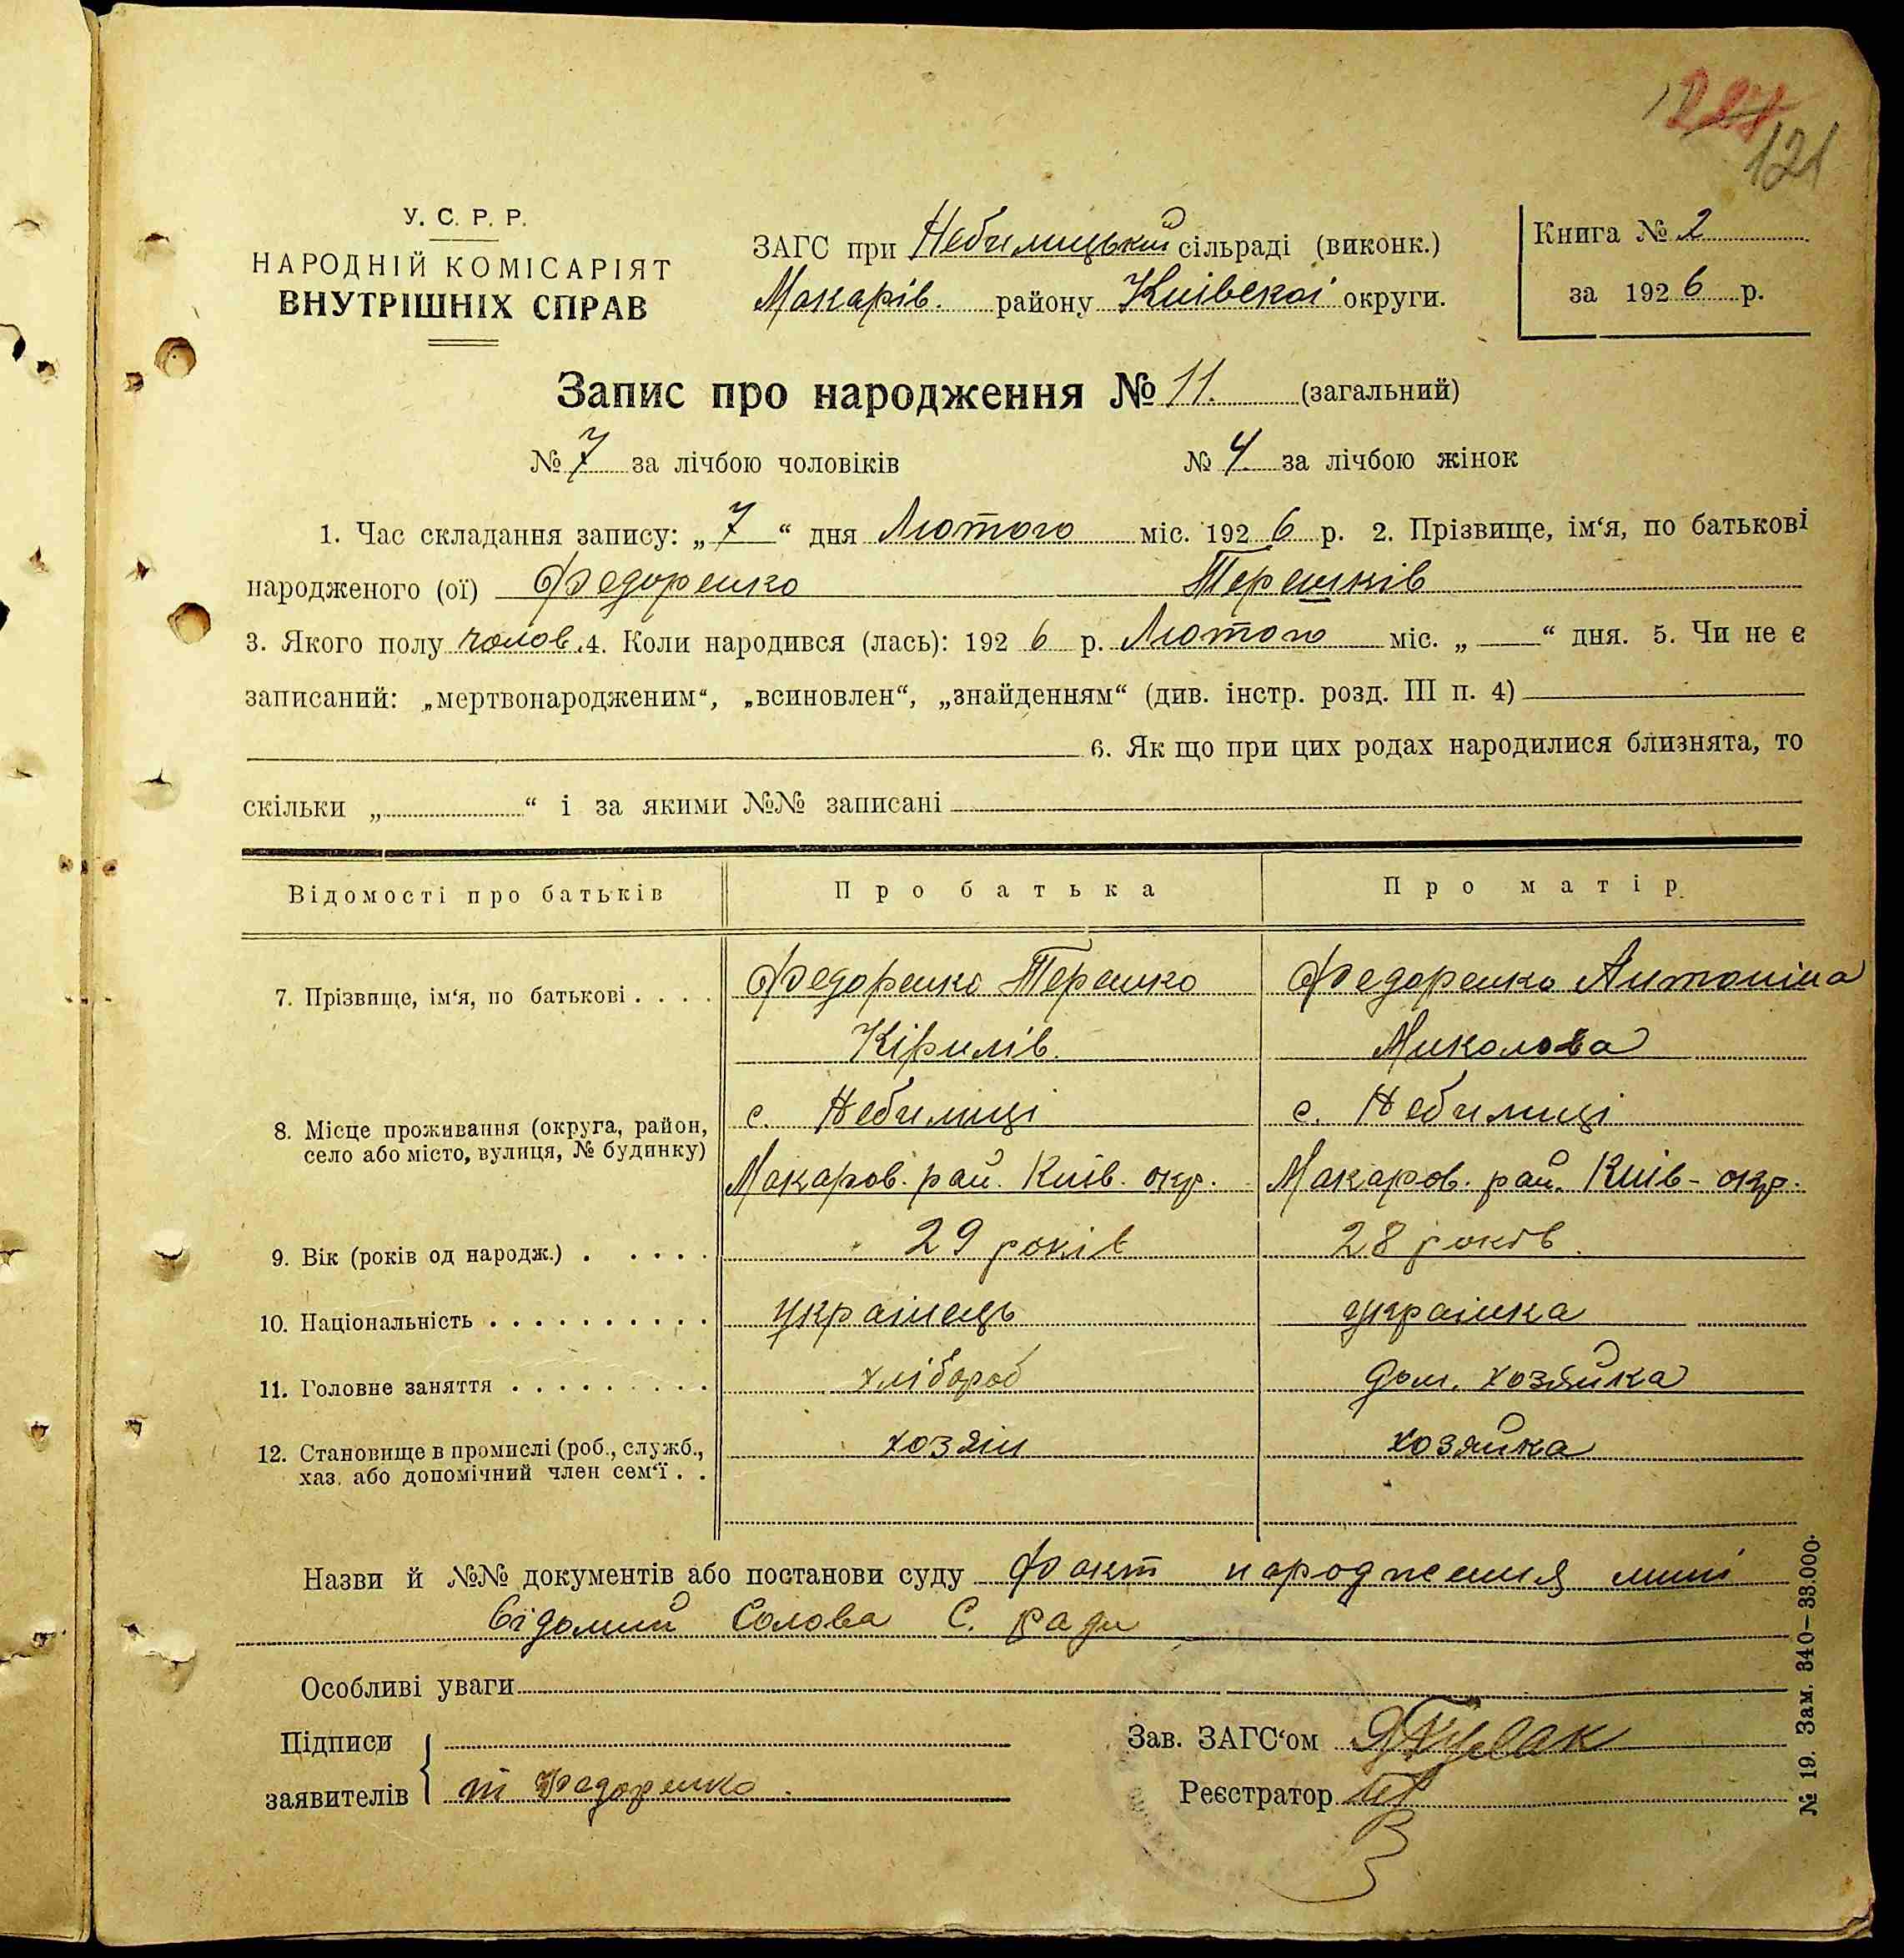 227
121
У. С. Р. Р.
НАРОДНІЙ КОМІСАРІЯТ
ВНУТРІШНІХ СПРАВ
ЗАГС при Небилицькій сільраді (виконк.)
Макарів. району Київскої округи.
Книга № 2
за 1926 р.
Запис про народження № 11. (загальний)
№ 7 за лічбою чоловіків № 4. за лічбою жінок
1. Час складання запису: „7“ дня Лютого міс. 1926 р. 2. Прізвище, ім‘я, по батькові
народженого (ої) Федоренко Терешків
3. Якого полу чолов. 4. Коли народився (лась): 1926 р. Лютого міс. „—“ дня. 5. Чи не є
записаний: „мертвонародженим“, „всиновлен“, „знайденням“ (див. інстр. розд. III п. 4)
6. Як що при цих родах народилися близнята, то
скільки „ “ і за якими №№ записані
Відомості про батьків Про батька Про матір
7. Прізвище, ім‘я, по батькові Федоренко Терешко Федоренко Антоніна
Кірилів. Миколова
8. Місце проживання (округа, район, село або місто, вулиця, № будинку) с. Небилиці с. Небилиці
Макаров. рай. Київ. окр. Макаров. рай. Київ - окр.
9. Вік (років од народж.) 29 років 28 років.
10. Національність українець українка
11. Головне заняття хлібороб дом. хозяйка
12. Становище в промислі (роб., служб., хозяін хозяйка
хаз. або допомічний член сем‘ї
Назви й №№ документів або постанови суду Факт народження мині
відомий Голова С. ради
Особливі уваги
Підписи
заявителів т Федоренко.
Зав. ЗАГС‘ом
Реєстратор
№ 19. Зам. 340—33.000.